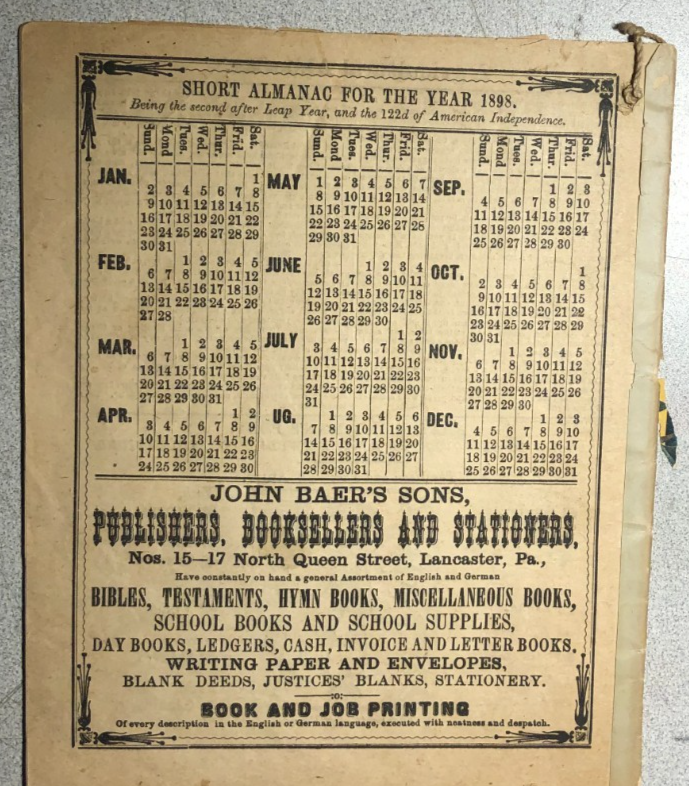 SHORT ALMANAC FOR THE YEAR 1898.
Being the second after Leap Year, and the 122d of American Independence.
Sund. Mond Tues. Wed. Thur. Frid. Sat.
JAN.
1
2 3 4 5 6 7 8
9 10 11 12 13 14 15
16 17 18 19 20 21 22
23 24 25 26 27 28 29
30 31
FEB.
1 2 3 4 5
6 7 8 9 10 11 12
13 14 15 16 17 18 19
20 21 22 23 24 25 26
27 28
MAR.
1 2 3 4 5
6 7 8 9 10 11 12
13 14 15 16 17 18 19
20 21 22 23 24 25 26
27 28 29 30 31
APR.
1 2
3 4 5 6 7 8 9
10 11 12 13 14 15 16
17 18 19 20 21 22 23
24 25 26 27 28 29 30
Sund. Mond Tues. Wed. Thur. Frid. Sat.
MAY
1 2 3 4 5 6 7
8 9 10 11 12 13 14
15 16 17 18 19 20 21
22 23 24 25 26 27 28
29 30 31
JUNE
1 2 3 4
5 6 7 8 9 10 11
12 13 14 15 16 17 18
19 20 21 22 23 24 25
26 27 28 29 30
JULY
1 2
3 4 5 6 7 8 9
10 11 12 13 14 15 16
17 18 19 20 21 22 23
24 25 26 27 28 29 30
31
UG.
1 2 3 4 5 6
7 8 9 10 11 12 13
14 15 16 17 18 19 20
21 22 23 24 25 26 27
28 29 30 31
Sund. Mond Tues. Wed. Thur. Frid. Sat.
SEP.
1 2 3
4 5 6 7 8 9 10
11 12 13 14 15 16 17
18 19 20 21 22 23 24
25 26 27 28 29 30
OCT.
1
2 3 4 5 6 7 8
9 10 11 12 13 14 15
16 17 18 19 20 21 22
23 24 25 26 27 28 29
30 31
NOV.
1 2 3 4 5
6 7 8 9 10 11 12
13 14 15 16 17 18 19
20 21 22 23 24 25 26
27 28 29 30
DEC.
1 2 3
4 5 6 7 8 9 10
11 12 13 14 15 16 17
18 19 20 21 22 23 24
25 26 27 28 29 30 31
JOHN BAER'S SONS,
PUBLISHERS, BOOKSELLERS AND STATIONERS,
Nos. 15—17 North Queen Street, Lancaster, Pa.,
Have constantly on hand a general Assortment of English and German
BIBLES, TESTAMENTS, HYMN BOOKS, MISCELLANEOUS BOOKS,
SCHOOL BOOKS AND SCHOOL SUPPLIES,
DAY BOOKS, LEDGERS, CASH, INVOICE AND LETTER BOOKS.
WRITING PAPER AND ENVELOPES,
BLANK DEEDS, JUSTICES' BLANKS, STATIONERY.
:o:
BOOK AND JOB PRINTING
Of every description in the English or German language, executed with neatness and despatch.